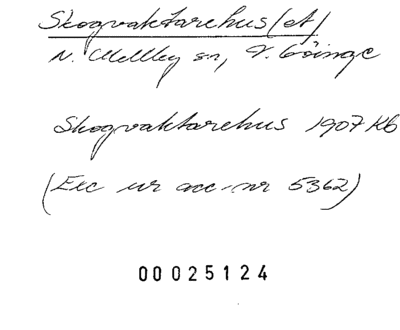 Skogvaktarehus(et)
N. Mellby sn, V. Göinge
Skogvaktarehus 1907 Kb
(Exc ur acc.-nr 5362)
00025124